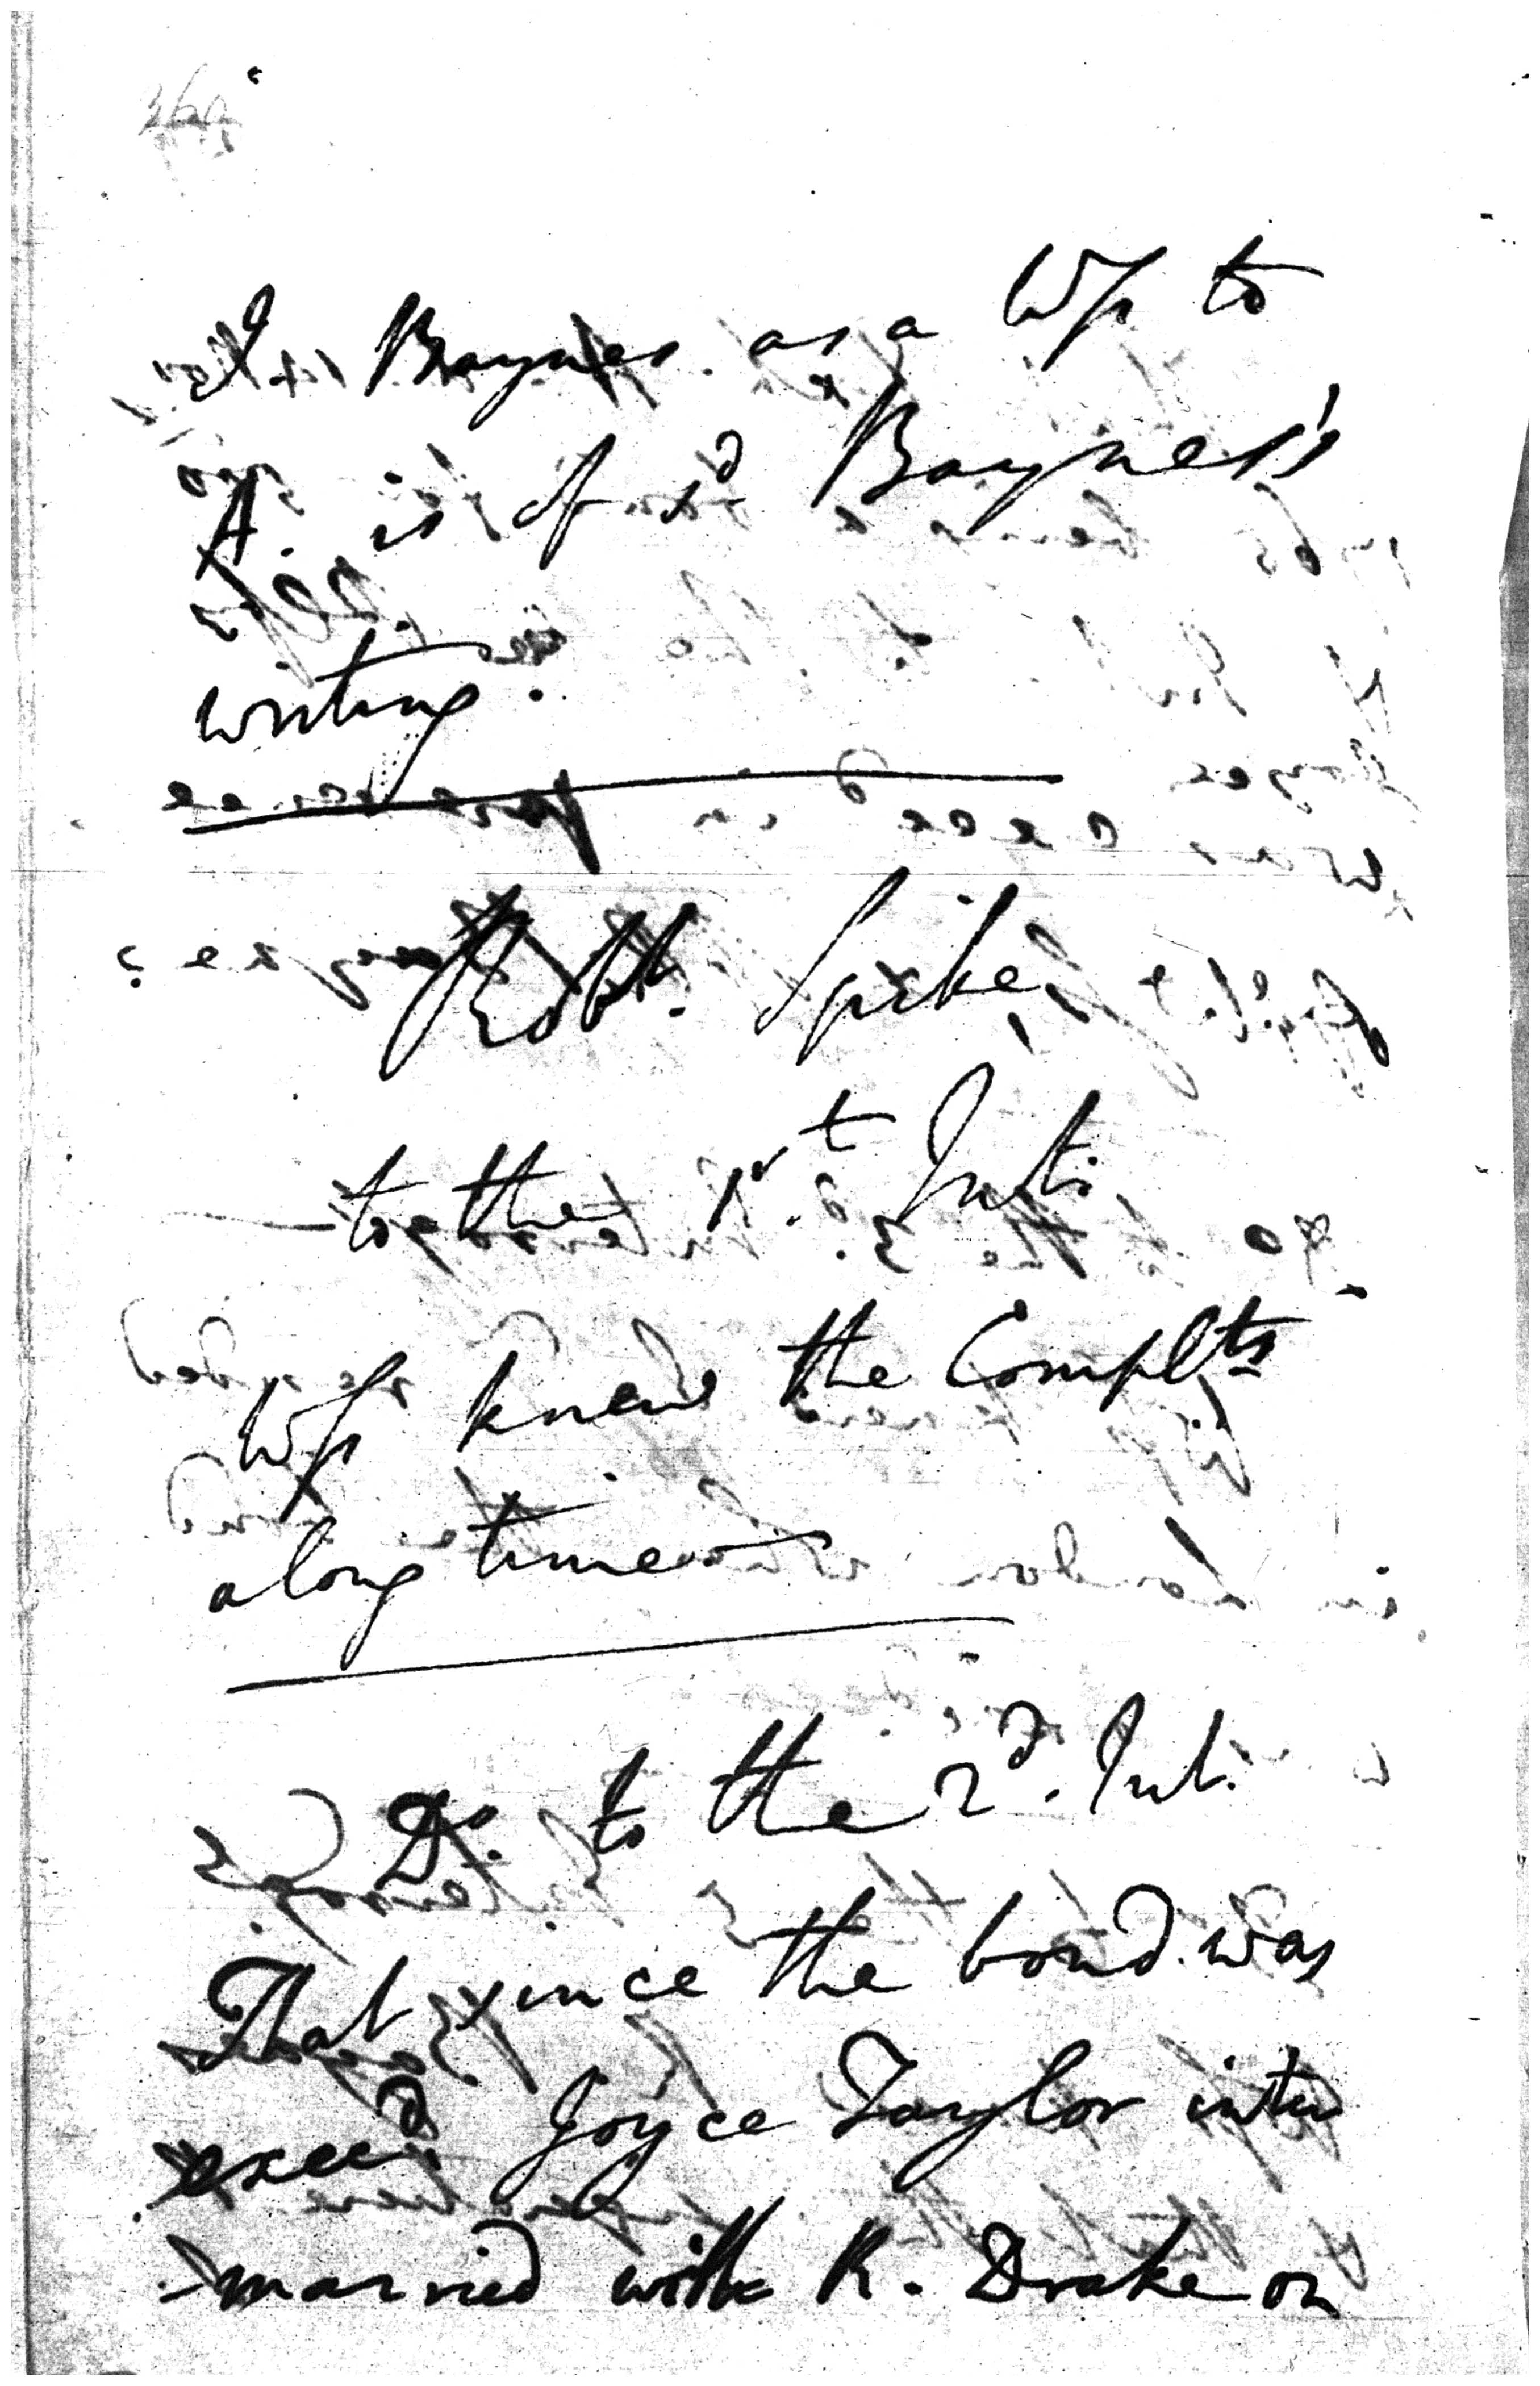 J Baynes as a Wss to
A. is of sd Baynes's
writing.
Robt. Spike,
to the 1st Inty.
Wss knew the Complts
along time
Do. to the 2d. Int.
That since the bond was
execd Joyce Taylor inter
married with R. Drake on